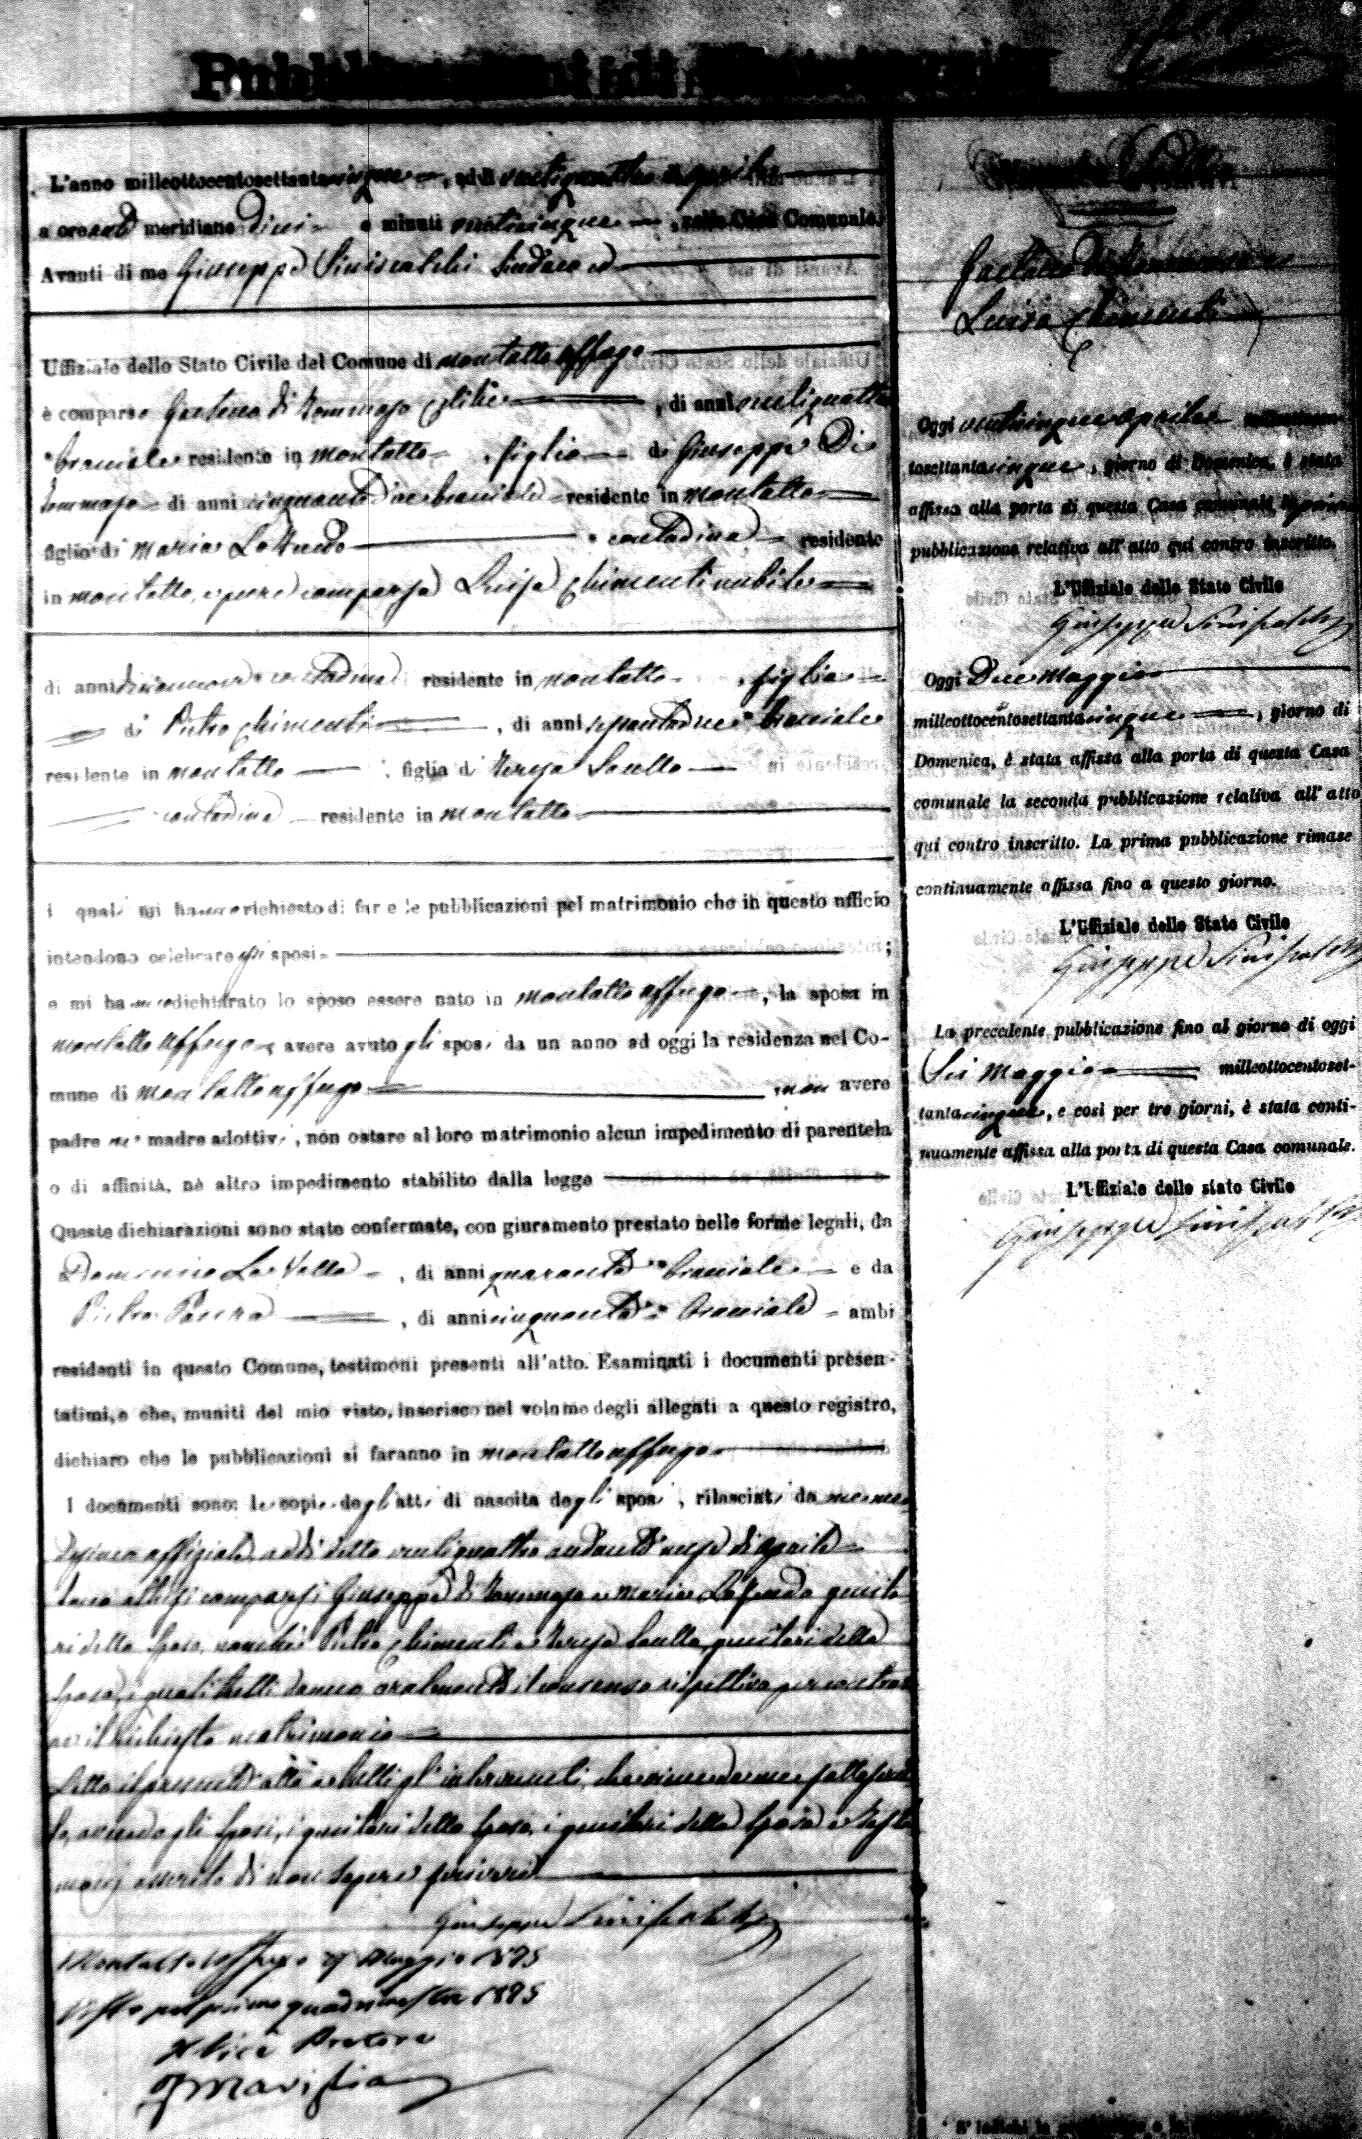 Pubblicazioni di
L'anno milleottocentosettantacinque, addi ventiquattro aprile
a ore anti meridiane dieci e minuti venticinque, nella Casa Comunale.
Avanti di me Giuseppe Siniscalchi Sindaco ed
Uffiziale dello Stato Civile del Comune di Montalto Uffugo
è comparso Gaetano di Tommaso celibe, di anni ventiquattro
bracciale residente in Montalto, figlio di Giuseppe Di
Tommaso di anni cinquantadue bracciale residente in Montalto
figlio di Maria contadina residente
in Montalto, e pure comparsa Luisa Chimenti nubile
di anni diciannove contadina residente in Montalto, figlia
di Pietro Chimenti, di anni bracciale
residente in Montalto, figlia di Teresa
contadina residente in Montalto
i quali mi hanno richiesto di fare le pubblicazioni pel matrimonio che in questo ufficio
intendono celebrare essi sposi;
e mi hanno dichiarato lo sposo essere nato in Montalto Uffugo, la sposa in
Montalto Uffugo, avere avuto gli sposi da un anno ad oggi la residenza nel Co-
mune di Montalto Uffugo, non avere
padre nè madre adottivi, non ostare al loro matrimonio alcun impedimento di parentela
o di affinità, nè altro impedimento stabilito dalla legge
Queste dichiarazioni sono state confermate, con giuramento prestato nelle forme legali, da
Domenico La Valle, di anni quaranta bracciale e da
Pietro, di anni cinquanta bracciale ambi
residenti in questo Comune, testimoni presenti all'atto. Esaminati i documenti presen-
tatimi, e che, muniti del mio visto, inserisco nel volume degli allegati a questo registro,
dichiaro che le pubblicazioni si faranno in Montalto Uffugo
I documenti sono: le copie degli atti di nascita degli sposi, rilasciati da me me-
desimo uffiziale addi detto ventiquattro andante mese di aprile
comparsi Giuseppe di Tommaso e Maria genito
ri dello sposo, nonchè Pietro Chimenti e Teresa genitori della
sposa, i quali tutti danno oralmente il consenso rispettivo per contrar
re il richiesto matrimonio
Letto il presente atto a tutti gl'intervenuti, che viene da me sottoscrit
to, avendo gli sposi, i genitori dello sposo, i genitori della sposa e testi
moni asserito di non sapere scrivere
Giuseppe Siniscalchi
Montalto Uffugo Maggio 1875
Visto pel primo quadrimestre 1875
Il Vice Pretore
Gaetano di Tommaso e
Luisa Chimenti
Oggi venticinque aprile milleottocen-
tosettantacinque, giorno di Domenica, è stata
affissa alla porta di questa Casa comunale la prima
pubblicazione relativa all'atto qui contro inscritto.
L'Uffiziale dello Stato Civile
Giuseppe Siniscalchi
Oggi Due Maggio
milleottocentosettantacinque, giorno di
Domenica, è stata affissa alla porta di questa Casa
comunale la seconda pubblicazione relativa all'atto
qui contro inscritto. La prima pubblicazione rimase
continuamente affissa fino a questo giorno.
L'Uffiziale dello Stato Civile
Giuseppe Siniscalchi
La precedente pubblicazione fino al giorno di oggi
Sei Maggio milleottocentoset-
tantacinque, e così per tre giorni, è stata conti-
nuamente affissa alla porta di questa Casa comunale.
L'Uffiziale dello stato Civile
Giuseppe Siniscalchi